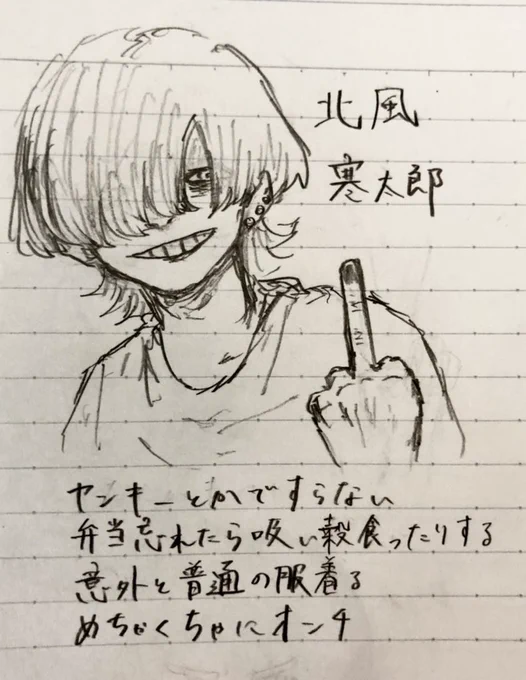 北風
寒太郎
ヤンキーとかですらない
弁当忘れたら吸い殻食ったりする
意外と普通の服着る
めちゃくちゃにオンチ